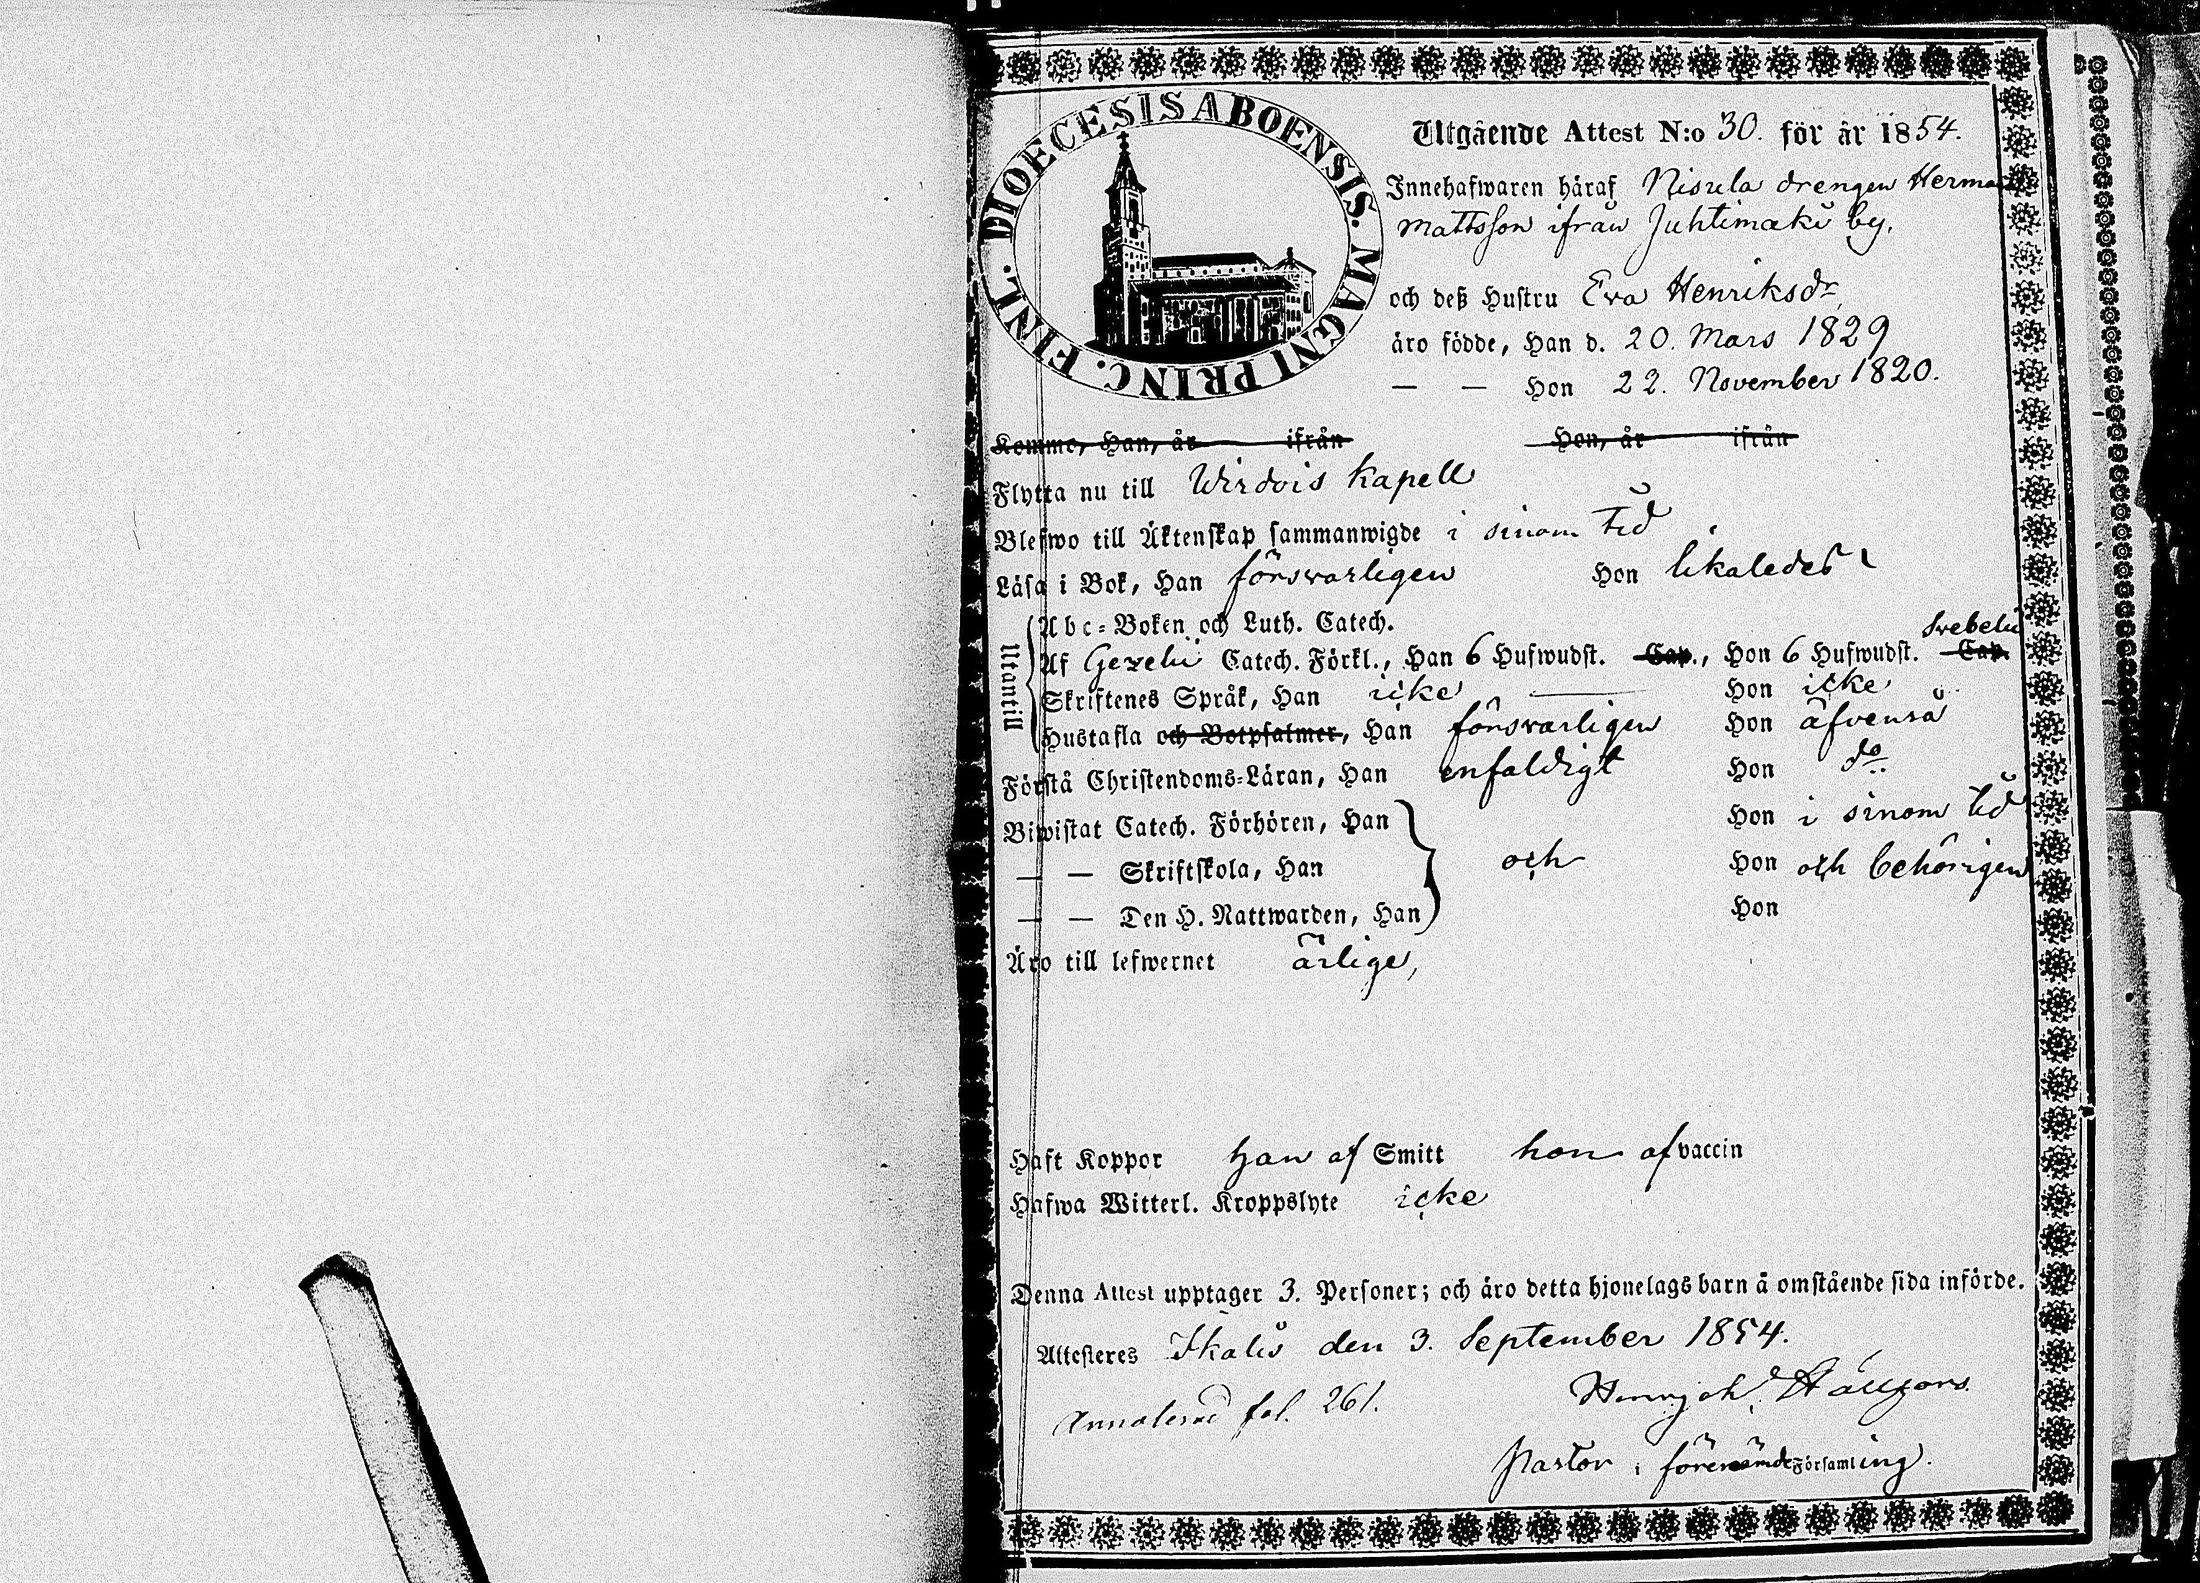 DIOECESIS ABOENSIS. MAGNI PRINC. FINL.
Utgående Attest N:o 30. för år 1854.
Innehafwaren häraf Nisula drengen Herman
Mattsson ifrån Juhtimäki by.
och deß Hustru Eva Henriksdr
äro födde, Han d. 20. Mars 1829
— — Hon 22. November 1820.
Komme, Han, år ifrån Hon, år ifrån
Flytta nu till Wirdois Kapell
Blefwo till Äktenskap sammanwigde i sinom tid
Läsa i Bok, Han försvarligen Hon likaledes
Utantill
Abc-Boken och Luth. Catech.
Svebelii
Af Gezelii Catech. Förkl., Han 6 Hufwudst. Cap., Hon 6 Hufwudst. Cap.
Skriftenes Språk, Han icke Hon icke
Hustafla och Botpsalmer, Han försvarligen Hon äfvenså
Förstå Christendoms-Läran, Han enfaldigt Hon do
Biwistat Catech. Förhören, Han Hon i sinom tid
— — Skriftskola, Han och Hon och behörigen
— — Den H. Nattwarden, Han Hon
Äro till lefwernet ärlige,
Haft Koppor han af Smitt hon af vaccin
Hafwa Witterl. Kroppslyte icke
Denna Attest upptager 3. Personer; och äro detta hjonelags barn å omstående sida införde.
Attesteres Ikalis den 3. September 1854.
fol. 261.
Pastor i förenämde Församling.